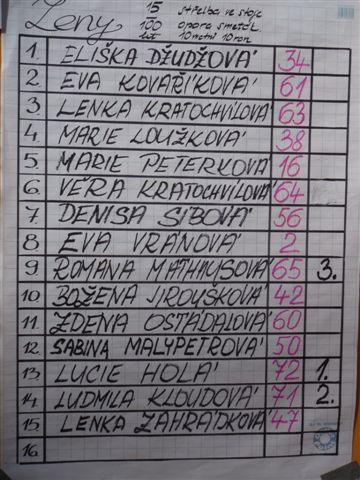 Ženy
15 střelba ve stoje
100 opora smeták
let 10 metrů 10 ran
1. ELIŠKA DŽUDŽOVÁ 34
2. EVA KOVAŘÍKOVÁ 61
3. LENKA KRATOCHVÍLOVÁ 63
4. MARIE LOUŽKOVÁ 38
5. MARIE PETERKOVÁ 16
6. VĚRA KRATOCHVÍLOVÁ 64
7. DENISA SIBOVÁ 56
8 EVA VRÁNOVÁ 2
9 ROMANA MATHYUSOVÁ 65 3.
10 BOŽENA JIROUŠKOVÁ 42
11. ZDENA OSTÁDALOVÁ 60
12. SABINA MALYPETROVÁ 50
13. LUCIE HOLÁ 72 1.
14. LUDMILA KLOUDOVÁ 71 2.
15. LENKA ZAHRÁDKOVÁ 47
16.